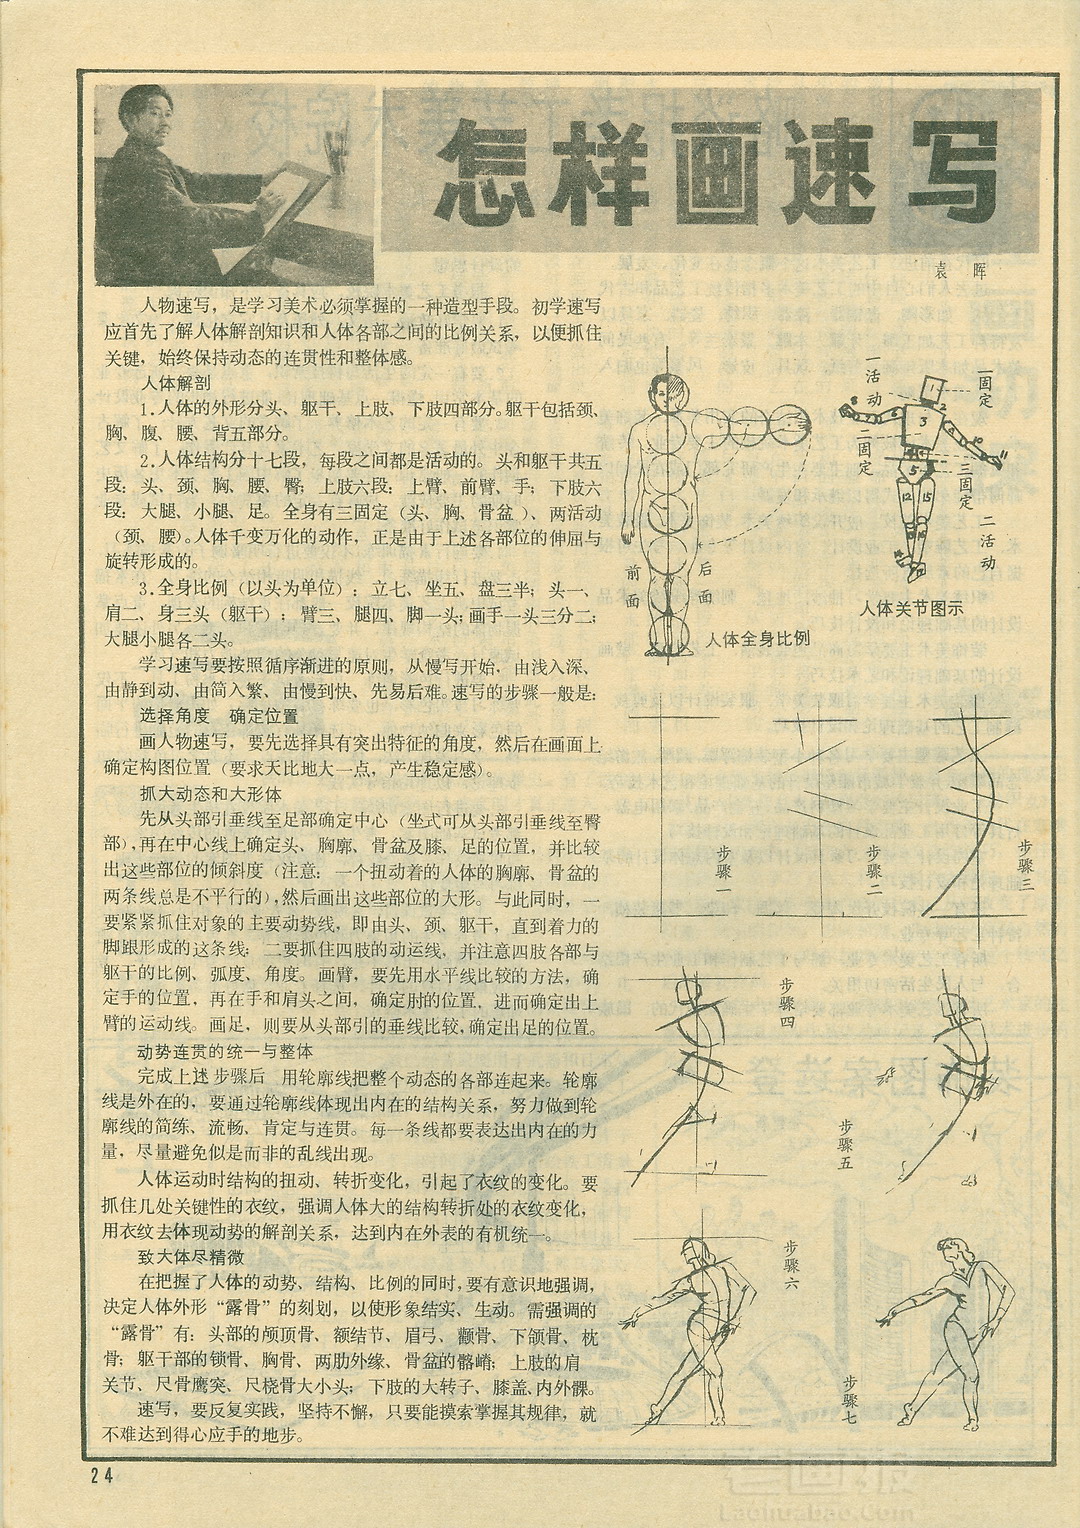 怎样画速写
袁 晖
人物速写，是学习美术必须掌握的一种造型手段。初学速写
应首先了解人体解剖知识和人体各部之间的比例关系，以便抓住
关键，始终保持动态的连贯性和整体感。
人体解剖
1.人体的外形分头、躯干、上肢、下肢四部分。躯干包括颈、
胸、腹、腰、背五部分。
2.人体结构分十七段，每段之间都是活动的。头和躯干共五
段：头、颈、胸、腰、臀；上肢六段：上臂、前臂、手；下肢六
段：大腿、小腿、足。全身有三固定（头、胸、骨盆）、两活动
（颈、腰）。人体千变万化的动作，正是由于上述各部位的伸屈与
旋转形成的。
3.全身比例（以头为单位）：立七、坐五、盘三半；头一、
肩二、身三头（躯干）；臂三、腿四、脚一头；画手一头三分二；
大腿小腿各二头。
学习速写要按照循序渐进的原则，从慢写开始，由浅入深、
由静到动、由简入繁、由慢到快、先易后难。速写的步骤一般是：
选择角度 确定位置
画人物速写，要先选择具有突出特征的角度，然后在画面上
确定构图位置（要求天比地大一点，产生稳定感）。
抓大动态和大形体
先从头部引垂线至足部确定中心（坐式可从头部引垂线至臀
部），再在中心线上确定头、胸廓、骨盆及膝、足的位置，并比较
出这些部位的倾斜度（注意：一个扭动着的人体的胸廓、骨盆的
两条线总是不平行的），然后画出这些部位的大形。与此同时，一
要紧紧抓住对象的主要动势线，即由头、颈、躯干，直到着力的
脚跟形成的这条线；二要抓住四肢的动运线，并注意四肢各部与
躯干的比例、弧度、角度。画臂，要先用水平线比较的方法，确
定手的位置，再在手和肩头之间，确定肘的位置，进而确定出上
臂的运动线。画足，则要从头部引的垂线比较，确定出足的位置。
动势连贯的统一与整体
完成上述步骤后 用轮廓线把整个动态的各部连起来。轮廓
线是外在的，要通过轮廓线体现出内在的结构关系，努力做到轮
廓线的简练、流畅、肯定与连贯。每一条线都要表达出内在的力
量，尽量避免似是而非的乱线出现。
人体运动时结构的扭动、转折变化，引起了衣纹的变化。要
抓住几处关键性的衣纹，强调人体大的结构转折处的衣纹变化，
用衣纹去体现动势的解剖关系，达到内在外表的有机统一。
致大体尽精微
在把握了人体的动势、结构、比例的同时，要有意识地强调，
决定人体外形“露骨”的刻划，以使形象结实、生动。需强调的
“露骨”有：头部的颅顶骨、额结节、眉弓、颧骨、下颌骨、枕
骨；躯干部的锁骨、胸骨、两肋外缘、骨盆的髂嵴；上肢的肩
关节、尺骨鹰突、尺桡骨大小头；下肢的大转子、膝盖、内外髁。
速写，要反复实践，坚持不懈，只要能摸索掌握其规律，就
不难达到得心应手的地步。
前面
后面
人体全身比例
一活动
一固定
二固定
三固定
二活动
1
2
3
5
12
15
人体关节图示
步骤一
步骤二
步骤三
步骤四
步骤五
步骤六
步骤七
24
老画报
Laohuabao.Com